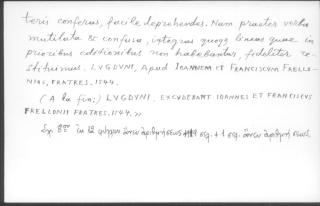 teris conferas, facile deprehendes. Nam praeter verba
mutilata & confusa, integras quoqz lineas quae in
prioribus editionibus non habebantur, fideliter re-
stituimus. LVGDVNI, Apud IOANNEM ET FRANCISCUM FRELLO-
NIOS, FRATRES. 1544.
(A la fin:) LVGDVNI, EXCVDEBANT IOANNES ET FRANCISCVS
FRELLONII FRATRES. 1544. »
Σχ. 8º ἐκ 12 φύλλων ἄνευ ἀριθμήσεως + σελ. + 1 σελ. ἄνευ ἀριθμήσεως.